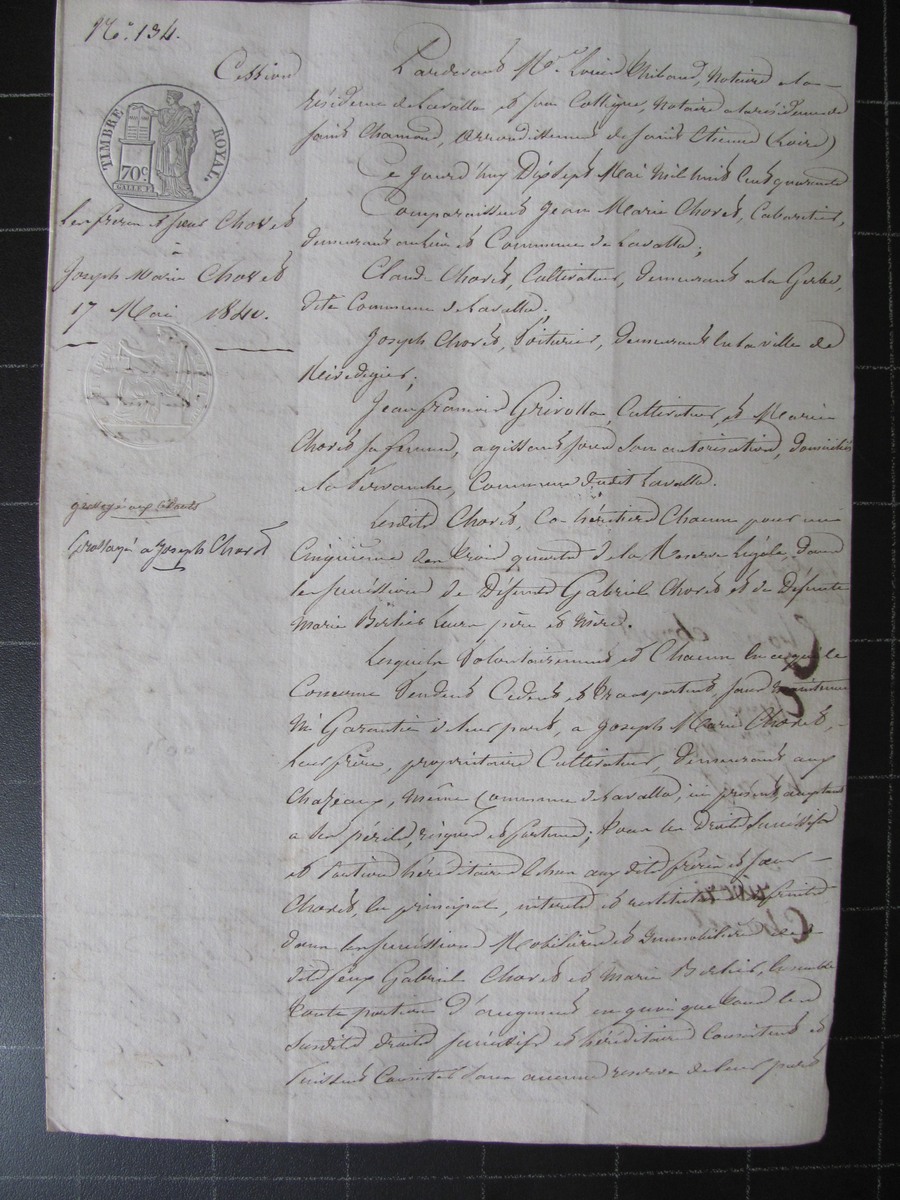 N.° 134.
Cession
TIMBRE ROYAL.
70c
Les frères et sœur Chovet
à
Joseph Marie Chovet
17 Mai 1840.
grossoyé aux
Grossoyé a Joseph Chovet
Pardevant Me. Thibaud, Notaire a la
résidence de Lavalla et son Collègue, Notaire a la résidence de
Saint Chamond, arrondissement de Saint Etienne (Loire)
Ce Jourd'huy Dix sept Mai Mil huit Cent quarante
Comparaissent Jean Marie Chovet, Cabaretier,
demeurant au lieu et Commune de Lavalla;
Claude Chovet, Cultivateur, demeurant a la
dite Commune de Lavalla;
Joseph Chovet, Voiturier, demeurant en la ville de
Jean Grivolla, Cultivateur, et Marie
Chovet sa femme, agissant sous son autorisation, domiciliés
a la Commune dudit Lavalla.
Lesdits Chovet, Co-héritiers Chacun pour un
Cinquième des trois quarts de la Réserve Légale, dans
les succéssions de Défunts Gabriel Chovet et de Défunte
Marie Berlier leurs père et mère.
Lesquels Volontairement et Chacun en ce qui le
Concerne Vendent Cèdent et transportent, sans maintenue
ni Garantie de leur part, a Joseph Marie Chovet,
leur frère, propriétaire Cultivateur, demeurant aux
Chazeaux, même Commune de Lavalla, ici présent, acceptant
a ses périls, risques et fortune; tous les Droits Successifs
et Portions héréditaires échus aux dits frères et sœur
Chovet, en principal, intérêts et restitution de fruits
dans les succéssions Mobilières et Immobilières des
dits feus Gabriel Chovet et Marie Berlier, Ensemble
toute portion d'augment en quoi que tous les
susdits droits successifs et héréditaires Consistent et
Puissent Consister Sans aucune réserve de leur part